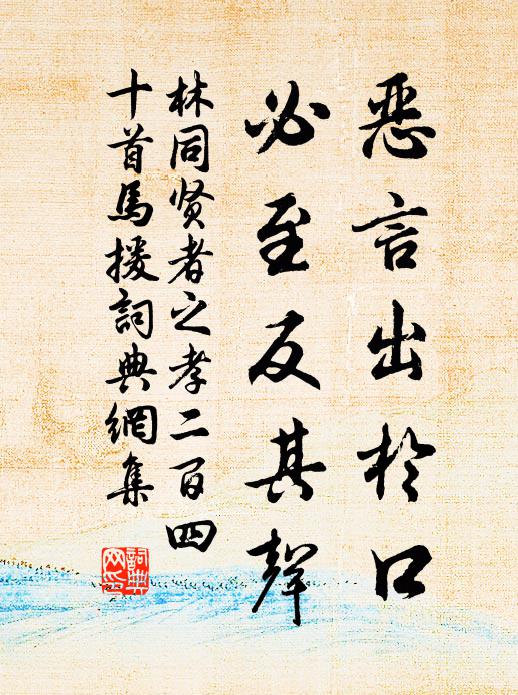 恶言出於口
必至反其聲
林同贤者之孝二百四
十首馬援詞典網集
詞典
网印